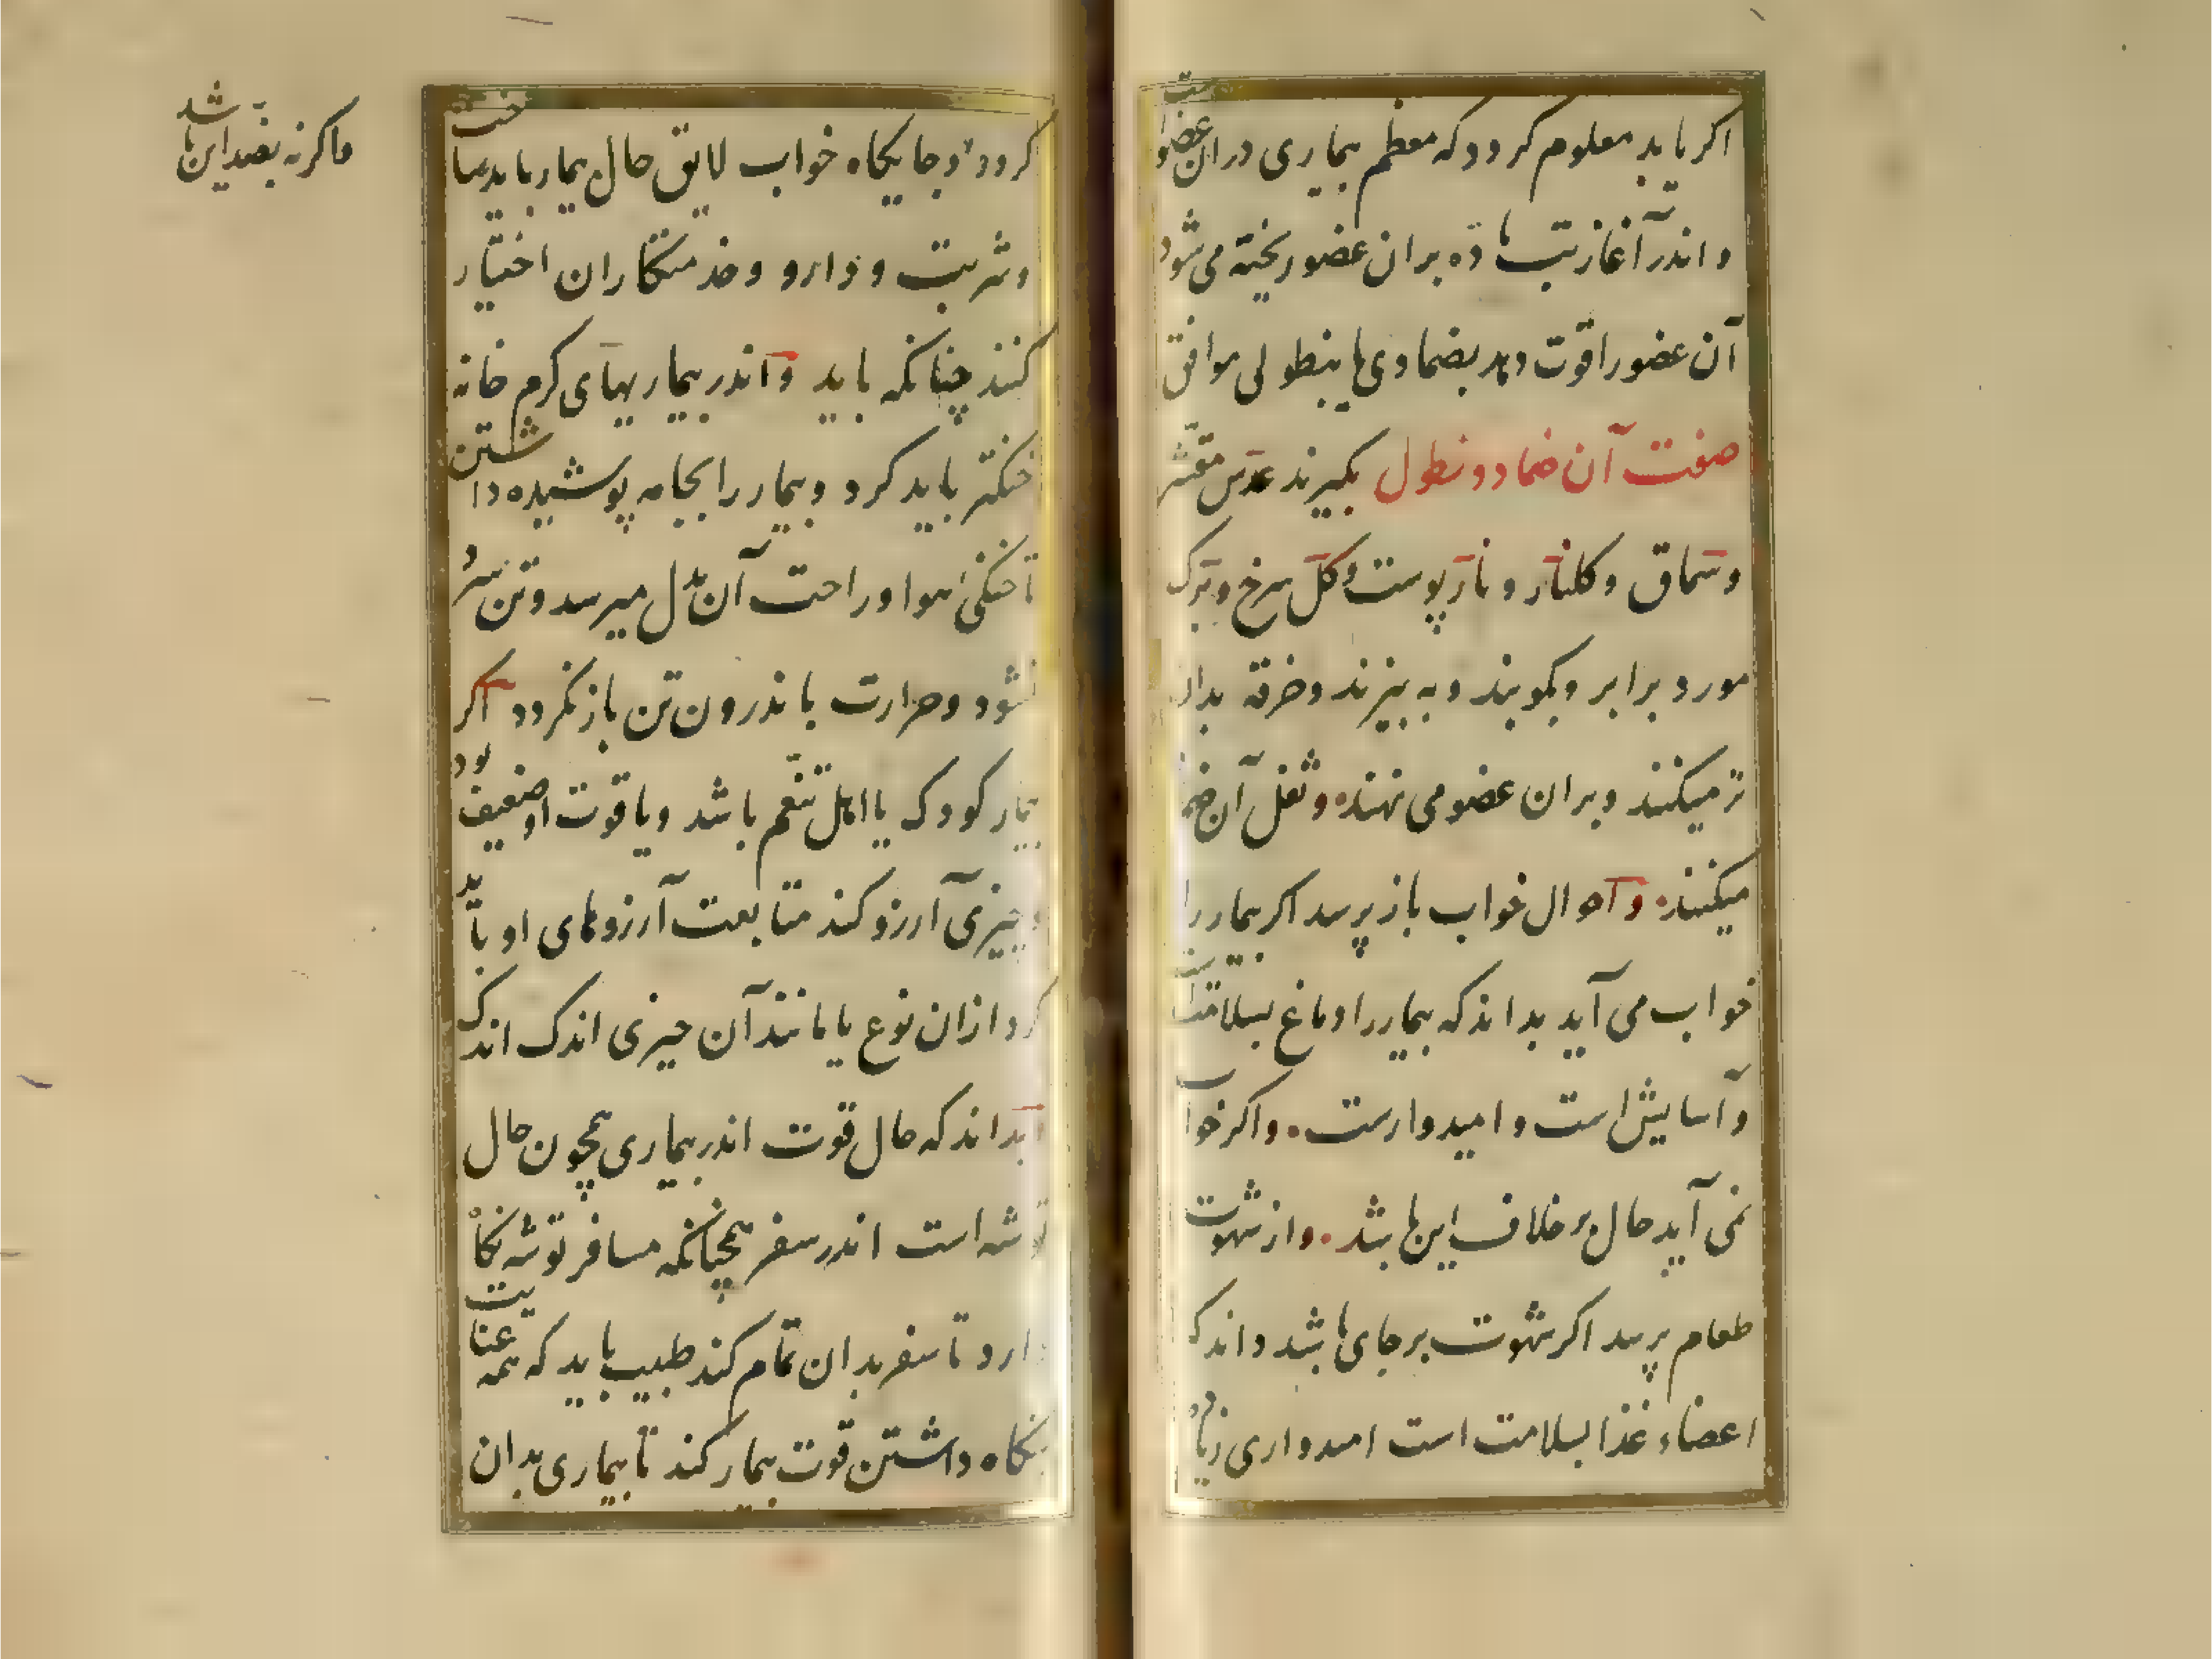 اکر یابد معلوم کردد که معظم بیماری دران عضوست
و اندر آغاز تب ماده بران عضو ریخته می شود
آن عضو را قوت دهد بضمادی یا بنطولی موافق
صفت آن ضماد و نطول بکیرند عدس مقشر
و سماق و کلنار و نار پوست و کل سرخ و برک
مورد برابر و بکوبند و به بیزند و خرقه بدان
تر میکنند و بران عضو می نهند و ثفل آن ضماد
میکنند و احوال خواب باز پرسد اکر بیمار را
خواب می آید بداند که بیمار را دماغ بسلامت است
و آسایش است و امیدوارست و اکر خواب
نمی آید حال بر خلاف این باشد و از شهوت
طعام پرسد اکر شهوت بر جای باشد داند که
اعضاء غذا بسلامت است امیدواری زیاد
کردد و جایکاه خواب لایق حال بیمار باید ساخت
و شربت و دارو و خدمتکاران اختیار
کنند چنانکه باید و اندر بیماریهای کرم خانه
خنکتر باید کرد و بیمار را بجامه پوشیده داشتن
تا خنکی هوا و راحت آن بدل میرسد و تن سرد
نشود و حرارت باندرون تن باز نکردد اکر
بیمار کودک یا اهل تنعم باشد و یا قوت او ضعیف بود
و چیزی آرزو کند متابعت آرزوهای او باید
کرد ازان نوع یا مانند آن چیزی اندک اندک
و بداند که حال قوت اندر بیماری همچون حال
توشه است اندر سفر همچنانکه مسافر توشه نکاه
دارد تا سفر بدان تمام کند طبیب باید که همه عنایت
بنکاه داشتن قوت بیمار کند تا بیماری بدان